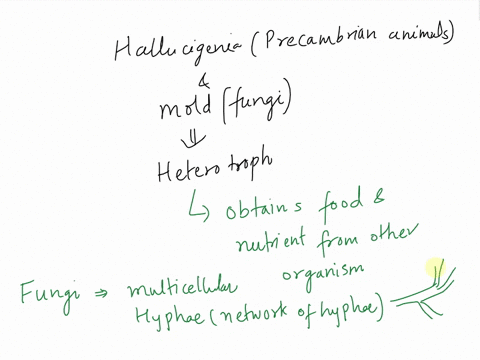 Hallucigenia (Precambrian animals)
&
mold (fungi)
⇓
Heterotroph
↳ obtains food &
nutrient from other
organism
Fungi ⇒ multicellular
Hyphae (network of hyphae)